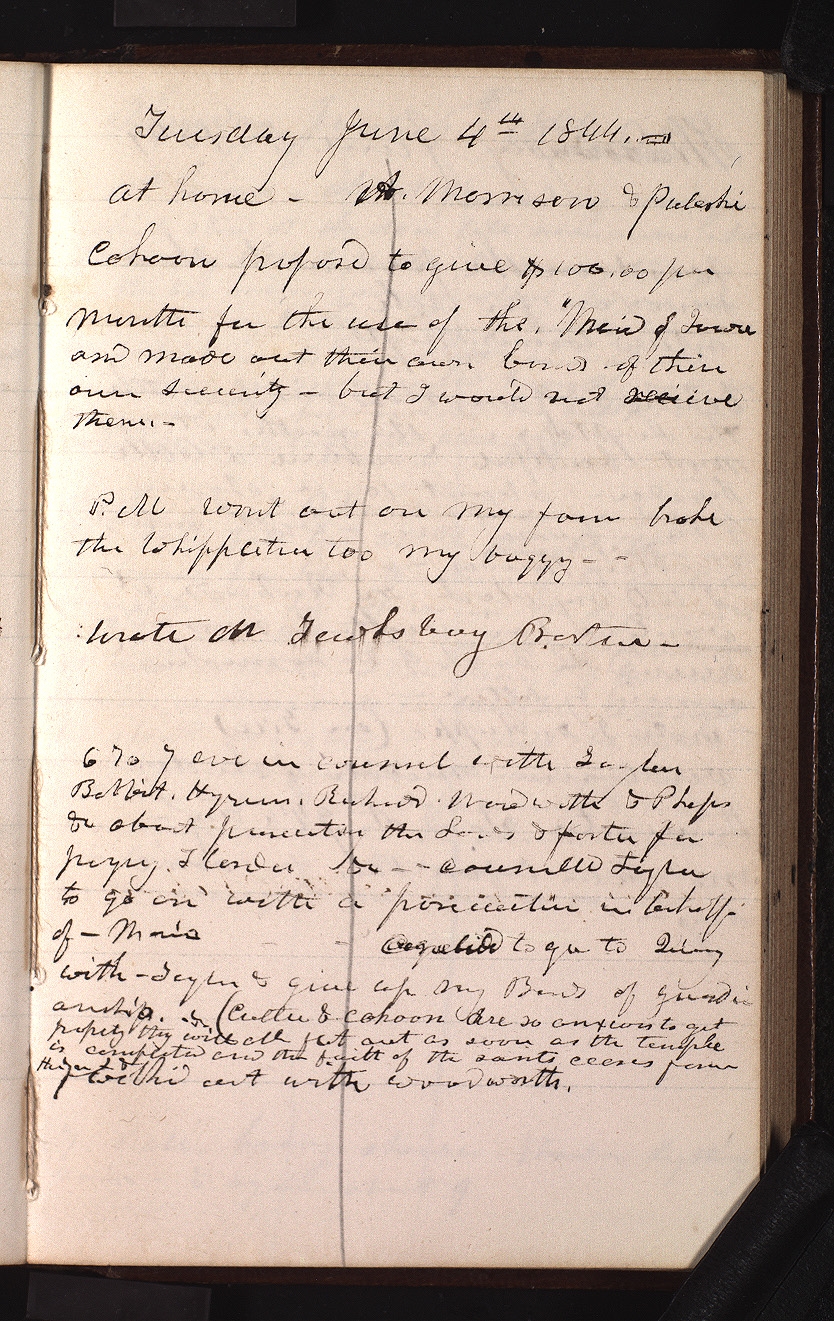 Tuesday June 4th 1844.—
at home — A. Morrison & Pulaski
Cahoon proposd to give $100.00 per
month for the use of the. "Maid of Iowa
and made out their own bonds of their
own security — but I would not recieve
them.—
P.M went out on my farm broke
the Whippletree too my buggy— -
wrote M Tewksbury Boston—
6 to 7 eve in counsel with Taylor
Babbit. Hyrum. Richard. Woodworth & Phelps
&c about prosecuting the Laws & foster for
perjury. Slander &c — counselled Taylor
to go on with a prosecution in behalf
of — Maria to go to Quincy
with — Taylor & give up my Bonds of guardi
anship. &c (Cutler & cahoon are so anxious to get
property they will all flat out as soon as the temple
is completed and the faith of the saints ceases from
them &c
rode out with woodworth.